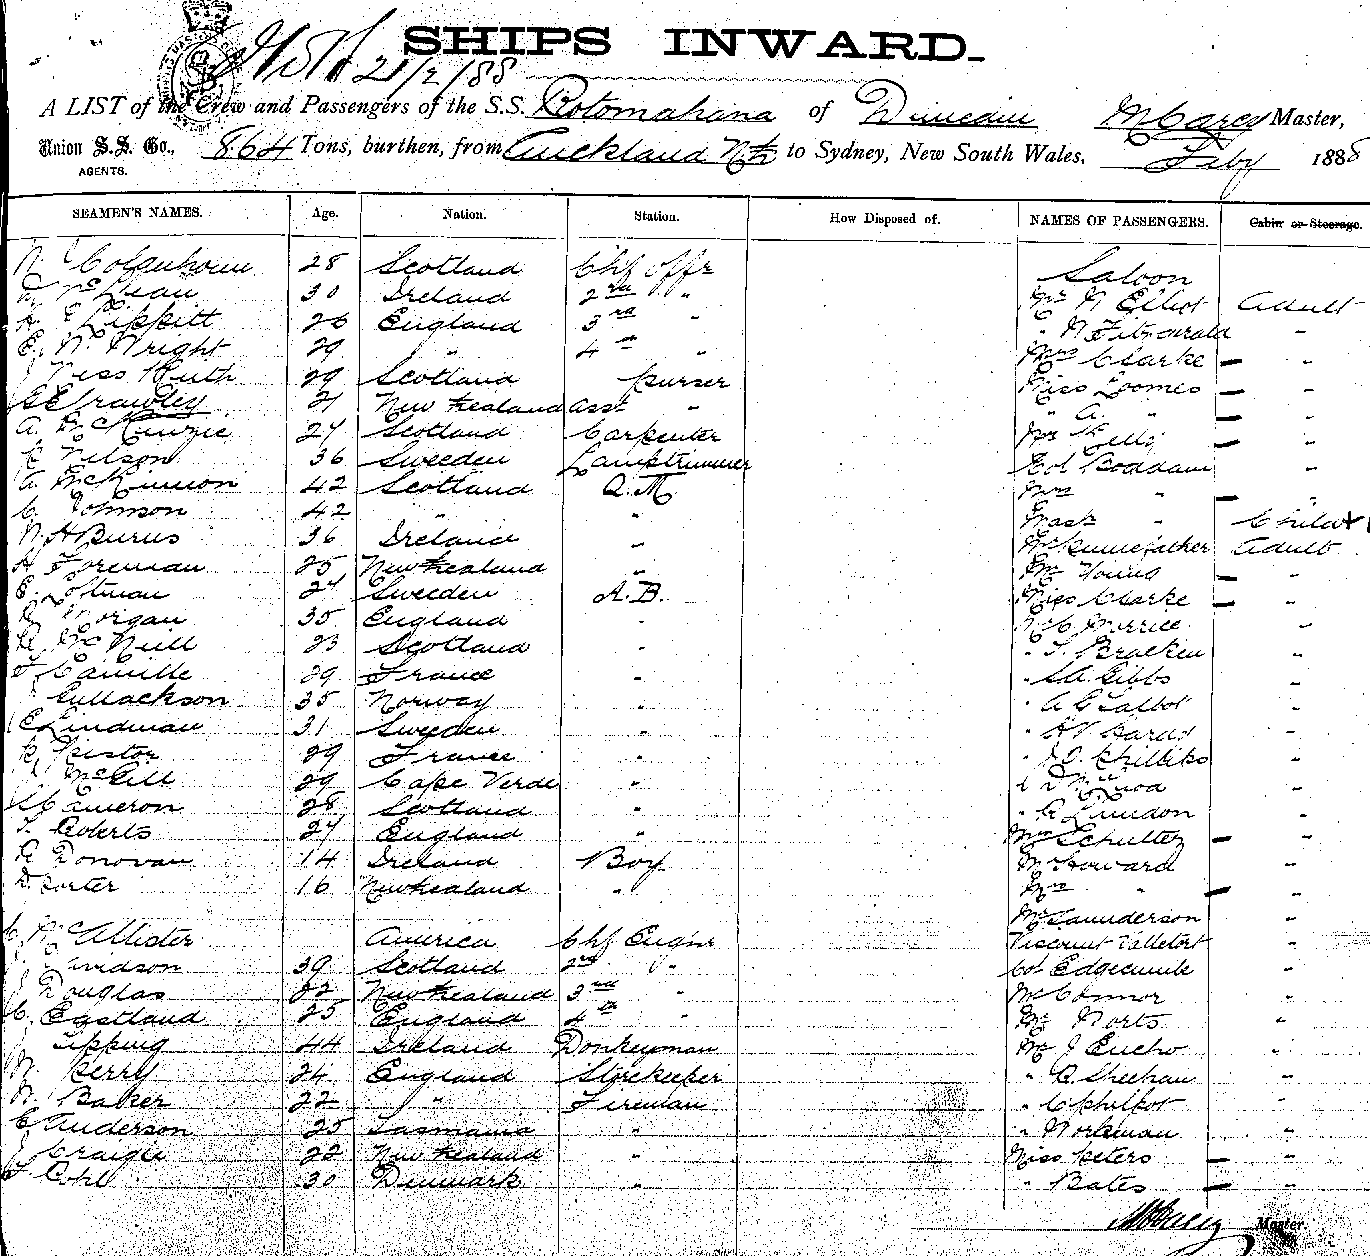 SHIPS INWARD.
21/2/88
A LIST of the Crew and Passengers of the S.S. Rotomahana of Dunedin M Carey Master,
Union S.S. Co., 864 Tons, burthen, from Auckland NZ to Sydney, New South Wales, Feby 1888
AGENTS.
SEAMEN'S NAMES. Age. Nation. Station. How Disposed of. NAMES OF PASSENGERS. Cabin or Steerage.
Colquhoun 28 Scotland Chf Offr Saloon
McLean 30 Ireland 2nd " Mr Elliot Adult
Lippitt 26 England 3rd " " Fitzgerald "
Wright 29 " 4th " Mrs Clarke "
29 Scotland Purser Miss Loomes "
Crawley 21 New Zealand Asst " " A. " "
A. McKenzie 27 Scotland Carpenter Kelly "
Nelson 36 Sweden Lamptrimmer Col Boddam "
McKinnon 42 Scotland Q.M. Mrs " "
C Johnson 42 " " Mast " Child
Burns 36 Ireland " Pennefather Adult
H Foreman 25 New Zealand " Mr Young "
24 Sweden A.B. Miss Clarke "
Morgan 35 England " "
McNeill 23 Scotland " " Bracken "
Camille 29 France " " Gibbs "
35 Norway " " A G Talbot "
Lindman 31 Sweden " " "
Pistor 29 France " " Phillips "
McGill 29 Cape Verde " "
Cameron 28 Scotland " "
Roberts 27 England " Mrs Schultz "
Donovan 14 Ireland Boy Mr Howard "
Porter 16 New Zealand " Mrs " "
Mr Saunderson "
McAllister America Chf Engnr Viscount Valletort "
Davidson 39 Scotland 2nd " Col Edgecumbe "
Douglas 22 New Zealand 3rd " "
C. Eastland 25 England 4th " Mr Norts "
Tipping 44 Ireland Donkeyman Mr J "
Perry 24 England Storekeeper " Sheehan "
Baker 22 " Fireman " C Philpot "
Anderson 25 Tasmania " " Workman "
J Craigie 22 New Zealand " Miss Peters "
30 Denmark " " Bates "
M Carey Master.